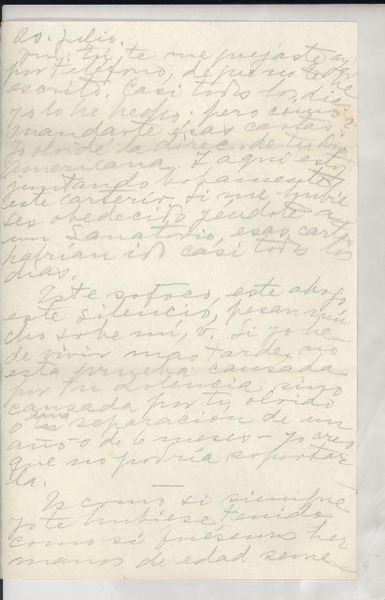 20. julio.
tú, te me quejaste ayer
por teléfono, de que no te he
escrito. Casi todos los días
yo lo he hecho, pero cómo
mandarte esas cartas?
Yo olvidé la direc. de tu
Americana. Y aquí estoy
juntando bobamente
este carterío. Si me hubie
ses obedecido yéndote a
un Sanatorio, esas cartas
habrían ido casi todos los
días.
Este sofoco, este ahogo,
este silencio, pesan mu
cho sobre mí, v. Si yo he
de vivir mas tarde, no
esta prueba causada
por tu dolencia, sino
causada por tu olvido
o una separación de un
año o de 6 meses - yo creo
que no podría soportar
la.
Es como si siempre
yo te hubiese tenido
como si fuésemos her
manos de edad seme